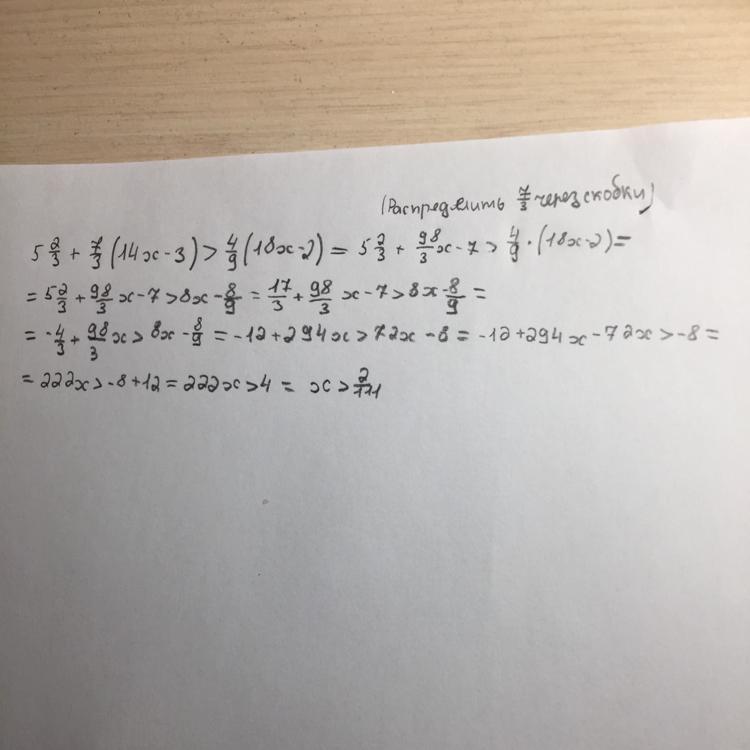 (Распределить 7/3 через скобки)
5 2/3 + 7/3 (14x - 3) > 4/9 (18x - 2) = 5 2/3 + 98/3 x - 7 > 4/9 · (18x - 2) =
= 5 2/3 + 98/3 x - 7 > 8x - 8/9 = 17/3 + 98/3 x - 7 > 8x - 8/9 =
= -4/3 + 98/3 x > 8x - 8/9 = -12 + 294x > 72x - 8 = -12 + 294x - 72x > -8 =
= 222x > -8 + 12 = 222x > 4 = x > 2/111